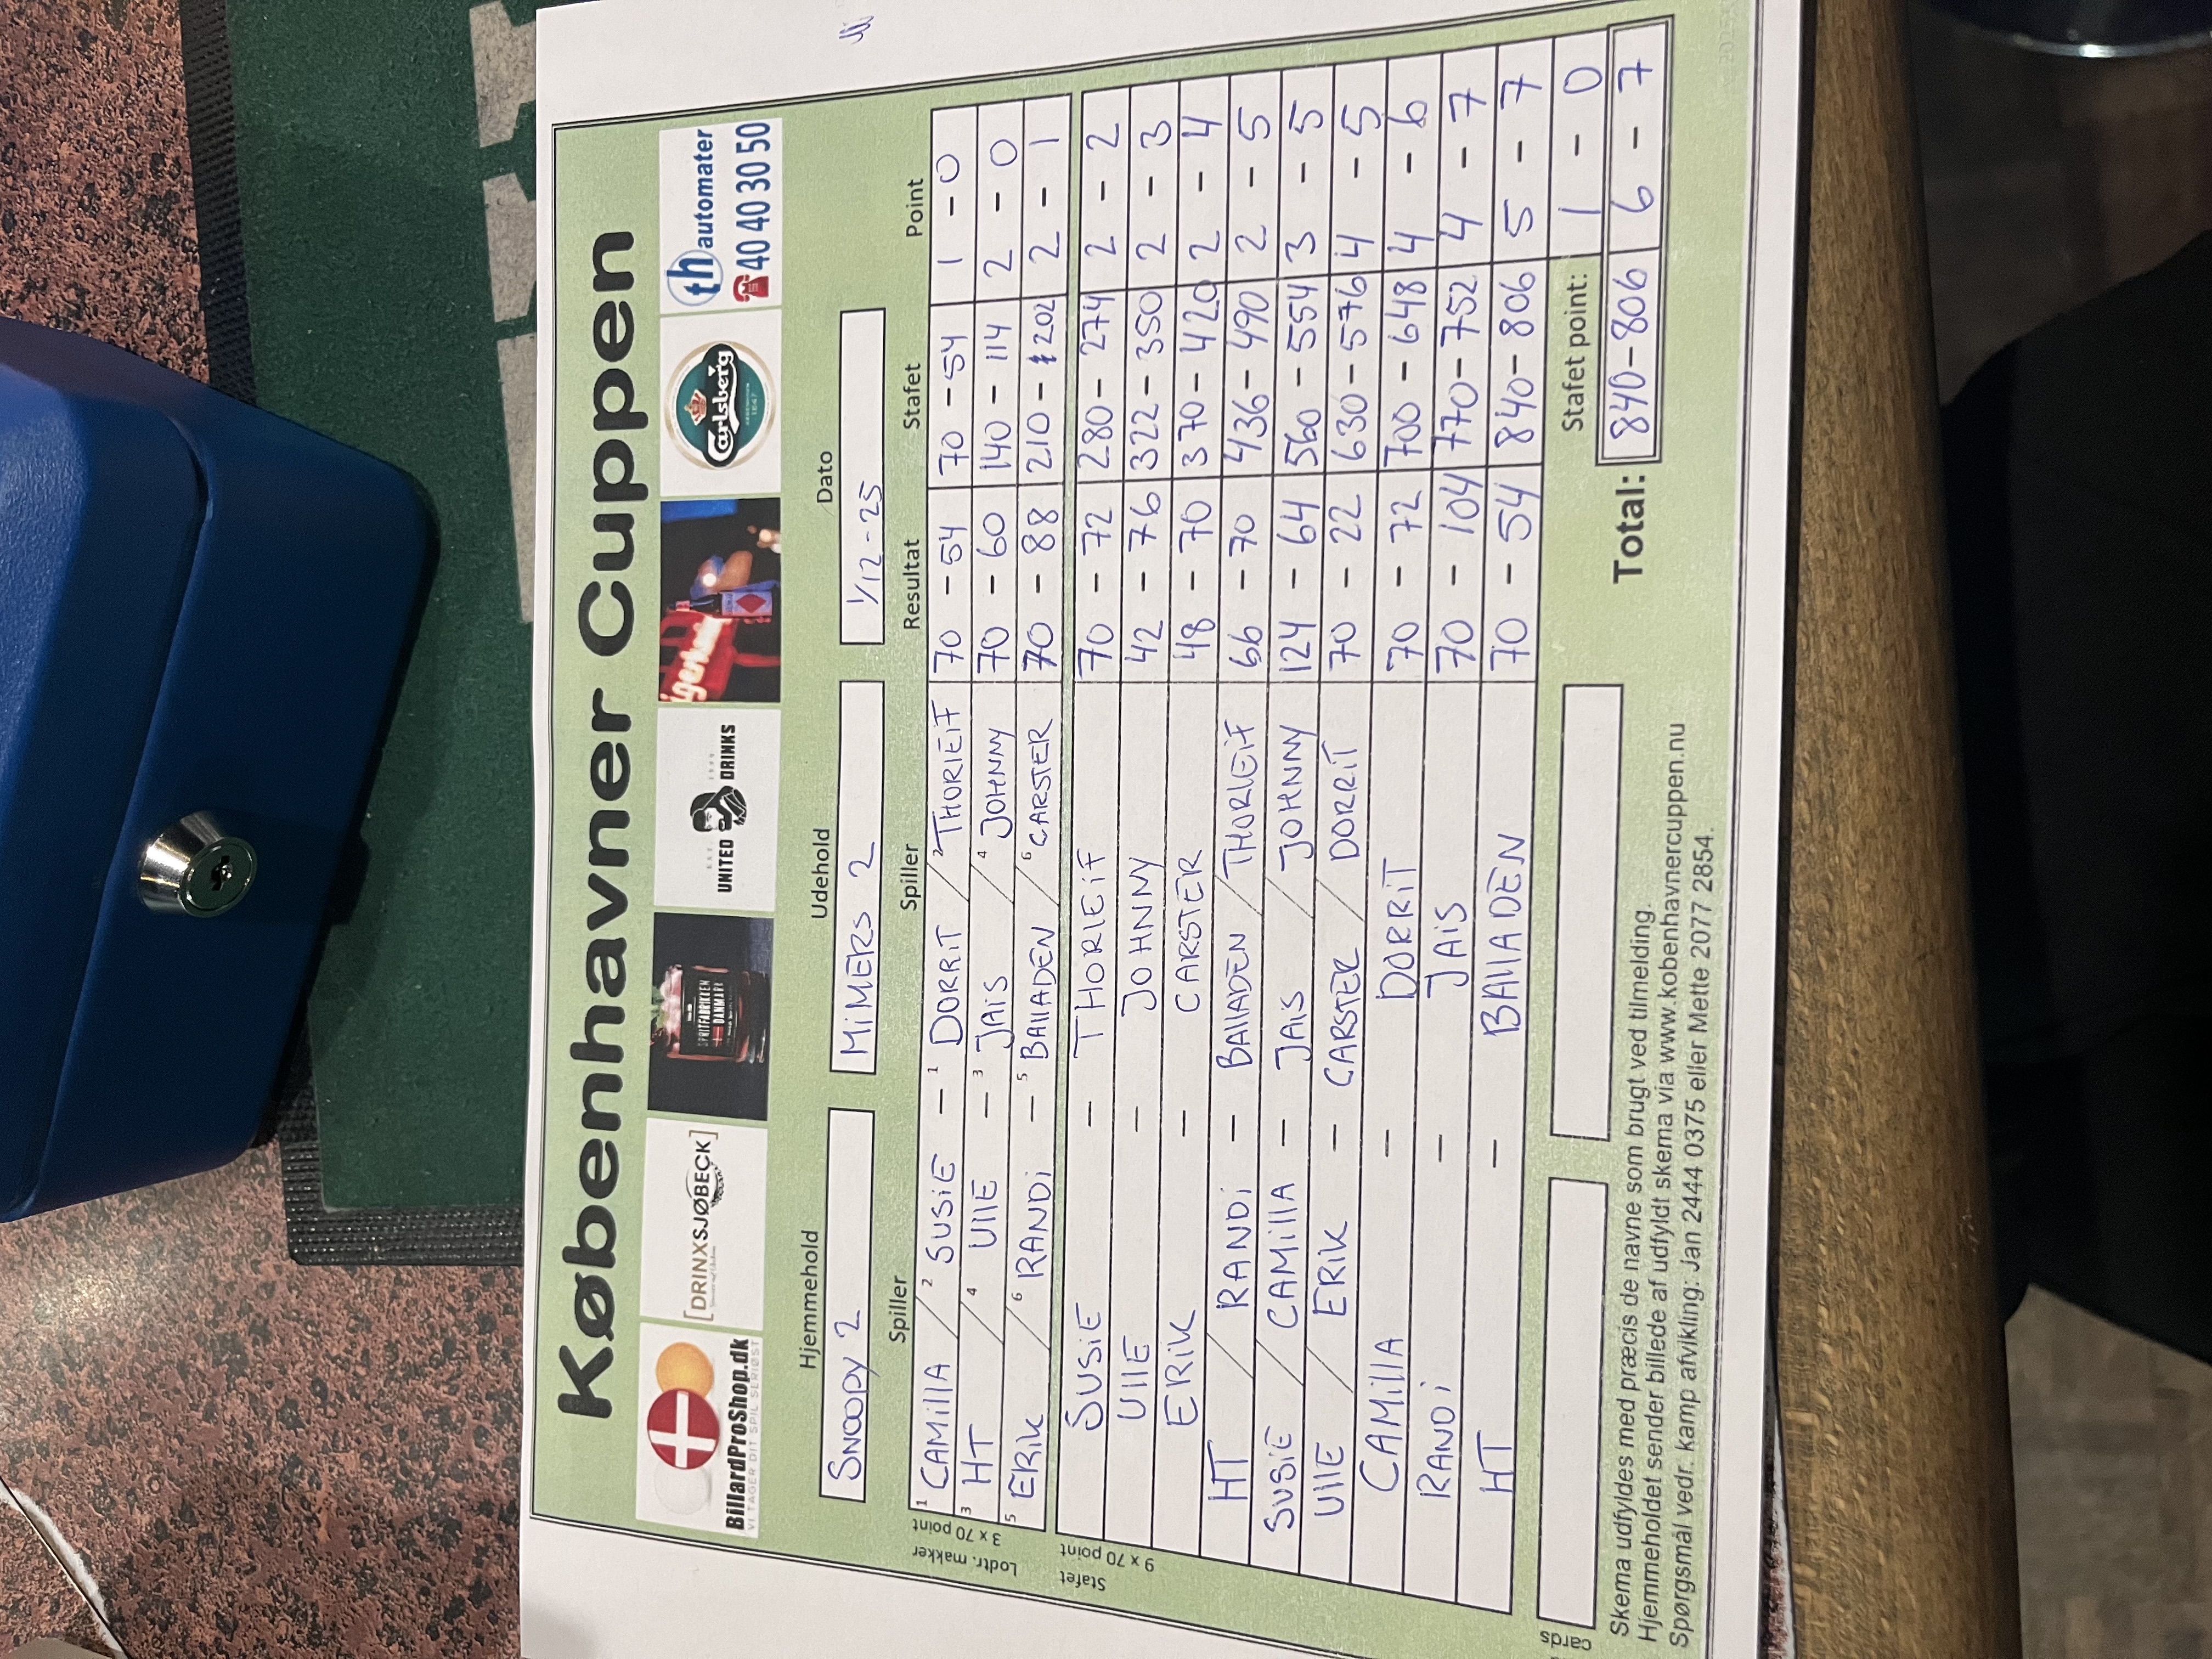 Københavner Cuppen
BillardProShop.dk
VI TAGER DIT SPIL SERIØST
[DRINXSJØBECK]
SPRITFABRIKKEN
DANMARK
UNITED DRINKS
Carlsberg
th automater
40 40 30 50
Hjemmehold Udehold Dato
SNOOPY 2 MiMERS 2 1/12-25
Spiller Spiller Resultat Stafet Point
Lodtr. makker
3 x 70 point
1 CAMillA / 2 SUSiE - 1 DORRiT / 2 THORlEiF 70 - 54 70 - 54 1 - 0
3 HT / 4 UllE - 3 JAiS / 4 JOHNNY 70 - 60 140 - 114 2 - 0
5 ERiK / 6 RANDi - 5 BAllADEN / 6 CARSTER 70 - 88 210 - 202 2 - 1
Stafet
9 x 70 point
SUSiE - THORlEiF 70 - 72 280 - 274 2 - 2
UllE - JOHNNY 42 - 76 322 - 350 2 - 3
ERiK - CARSTER 48 - 70 370 - 420 2 - 4
HT / RANDi - BAllADEN / THORlEiF 66 - 70 436 - 490 2 - 5
SUSiE / CAMillA - JAiS / JOHNNY 124 - 64 560 - 554 3 - 5
UllE / ERiK - CARSTER / DORRiT 70 - 22 630 - 576 4 - 5
CAMillA - DORRiT 70 - 72 700 - 648 4 - 6
RANDi - JAiS 70 - 104 770 - 752 4 - 7
HT - BAllADEN 70 - 54 840 - 806 5 - 7
cards
Stafet point: 1 - 0
Total: 840-806 6 - 7
Skema udfyldes med præcis de navne som brugt ved tilmelding.
Hjemmeholdet sender billede af udfyldt skema via www.kobenhavnercuppen.nu
Spørgsmål vedr. kamp afvikling: Jan 2444 0375 eller Mette 2077 2854.